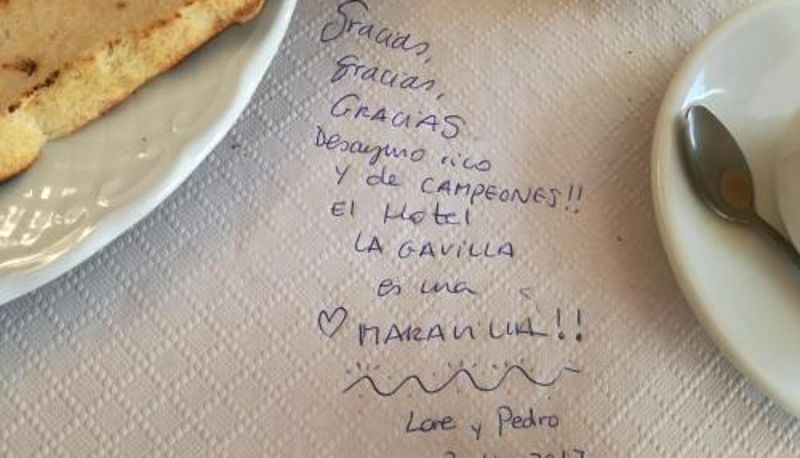 Gracias,
gracias,
GRACIAS
Desayuno rico
y de CAMPEONES!!
El Hotel
LA GAVILLA
es una
♡ MARAVILLA!!
Lore y Pedro
2017